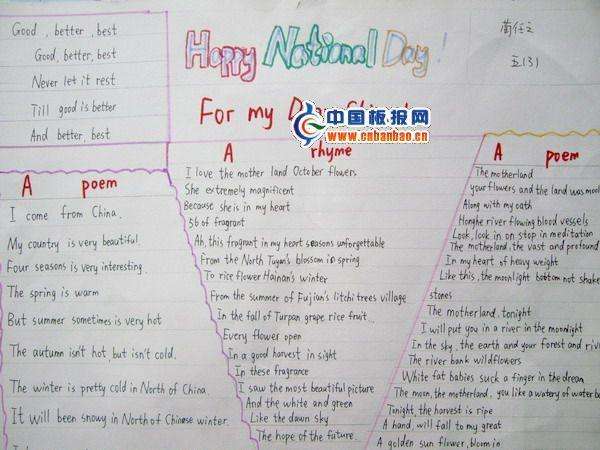 Good, better, best
Good, better, best
Never let it rest
Till good is better
And better, best
Happy National Day!
五(3)
For my
中国板报网
www.cnbanbao.cn
A poem
I come from China.
My country is very beautiful.
Four seasons is very interesting.
The spring is warm
But summer sometimes is very hot
The autumn isn't hot, but isn't cold.
The winter is pretty cold in North of China.
It will been snowy in North of Chinese winter.
A rhyme
I love the mother land October flowers
She extremely magnificent
Because she is in my heart
56 of fragrant
Ah, this fragrant in my heart seasons unforgettable
From the North Tuyan's blossom in spring
To rice flower Hainan's winter
From the summer of Fujian's litchi trees village
In the fall of Turpan grape rice fruit
Every flower open
In a good harvest in sight
In these fragrance
I saw the most beautiful picture
And the white and green
Like the dawn sky
The hope of the future.
A poem
The motherland
your flowers and the land was
Along with my oath
Honghe river flowing blood vessels
Look, look in on stop in meditation
The motherland, the vast and profound
In my heart of heavy weight
Like this, the moonlight bottom not shake
stones
The motherland, tonight
I will put you in a river in the moonlight
In the sky, the earth and your forest and
The river bank wildflowers
White fat babies suck a finger in the dream
The moon, the motherland, you like a watery of water
Tonight, the harvest is ripe
A hand, will fall to my great
A golden sun flower, bloom in